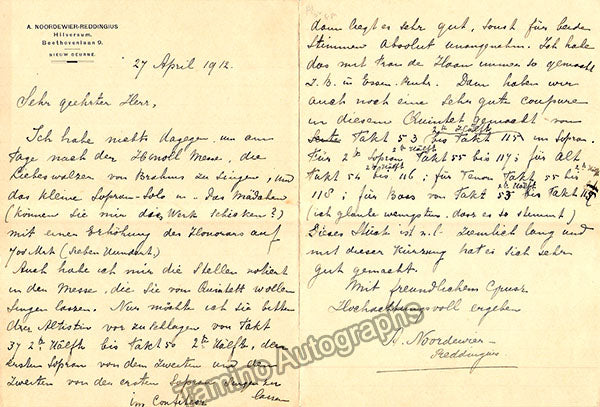 A. NOORDEWIER-REDDINGIUS
Hilversum.
Beethovenlaan 9.
NIEUW GEURNE.
27 April 1912.
Sehr geehrter Herr,
Ich habe nichts dagegen um am
Tage nach der H moll Messe, die
Liebeswalzer von Brahms zu singen, und
das kleine Sopran-Solo u. "Das Mädchen
(können Sie mir das Werk schicken?)
mit einer Erhöhung des Honorars auf
700 Mrk (sieben Hundert)
Auch habe ich mir die Stellen notiert
in den Messe, die Sie vom Quintett wollen
singen lassen. Nur möchte ich Sie bitten
den Altisten vor zu schlagen von Takt
37 2te Hälfte bis Takt 50 2te Hälfte, den
ersten Sopran von dem Zweiten und den
Zweiten von den ersten Sopran singen zu
im Confiteor lassen
dann liegt es sehr gut, sonst für beiden
Stimmen absolut unangenehm. Ich habe
das mit Frau de Haan immer so gemacht
z.B. in Essen-Ruhr. Dann haben wir
auch noch eine sehr gute coupure
in diesem Quintet gemacht von
Takt 53 2te Hälfte bis Takt 115 im Sopran.
Für 2te Sopran Takt 55 2te Hälfte bis 117; für Alt
Takt 54 bis 116; für Tenor Takt 55 2te Hälfte bis
118; für Bass von Takt 53 2te Hälfte bis Takt 115
(ich glaube wenigstens, dass es so stimmt)
Dieses Stück ist n.l. ziemlich lang und
mit dieser Kürzung hat es sich sehr
gut gemacht.
Mit freundlichem Gruss
Hochachtungsvoll ergeben
A. Noordewier-
Reddingius
Tamino Autographs